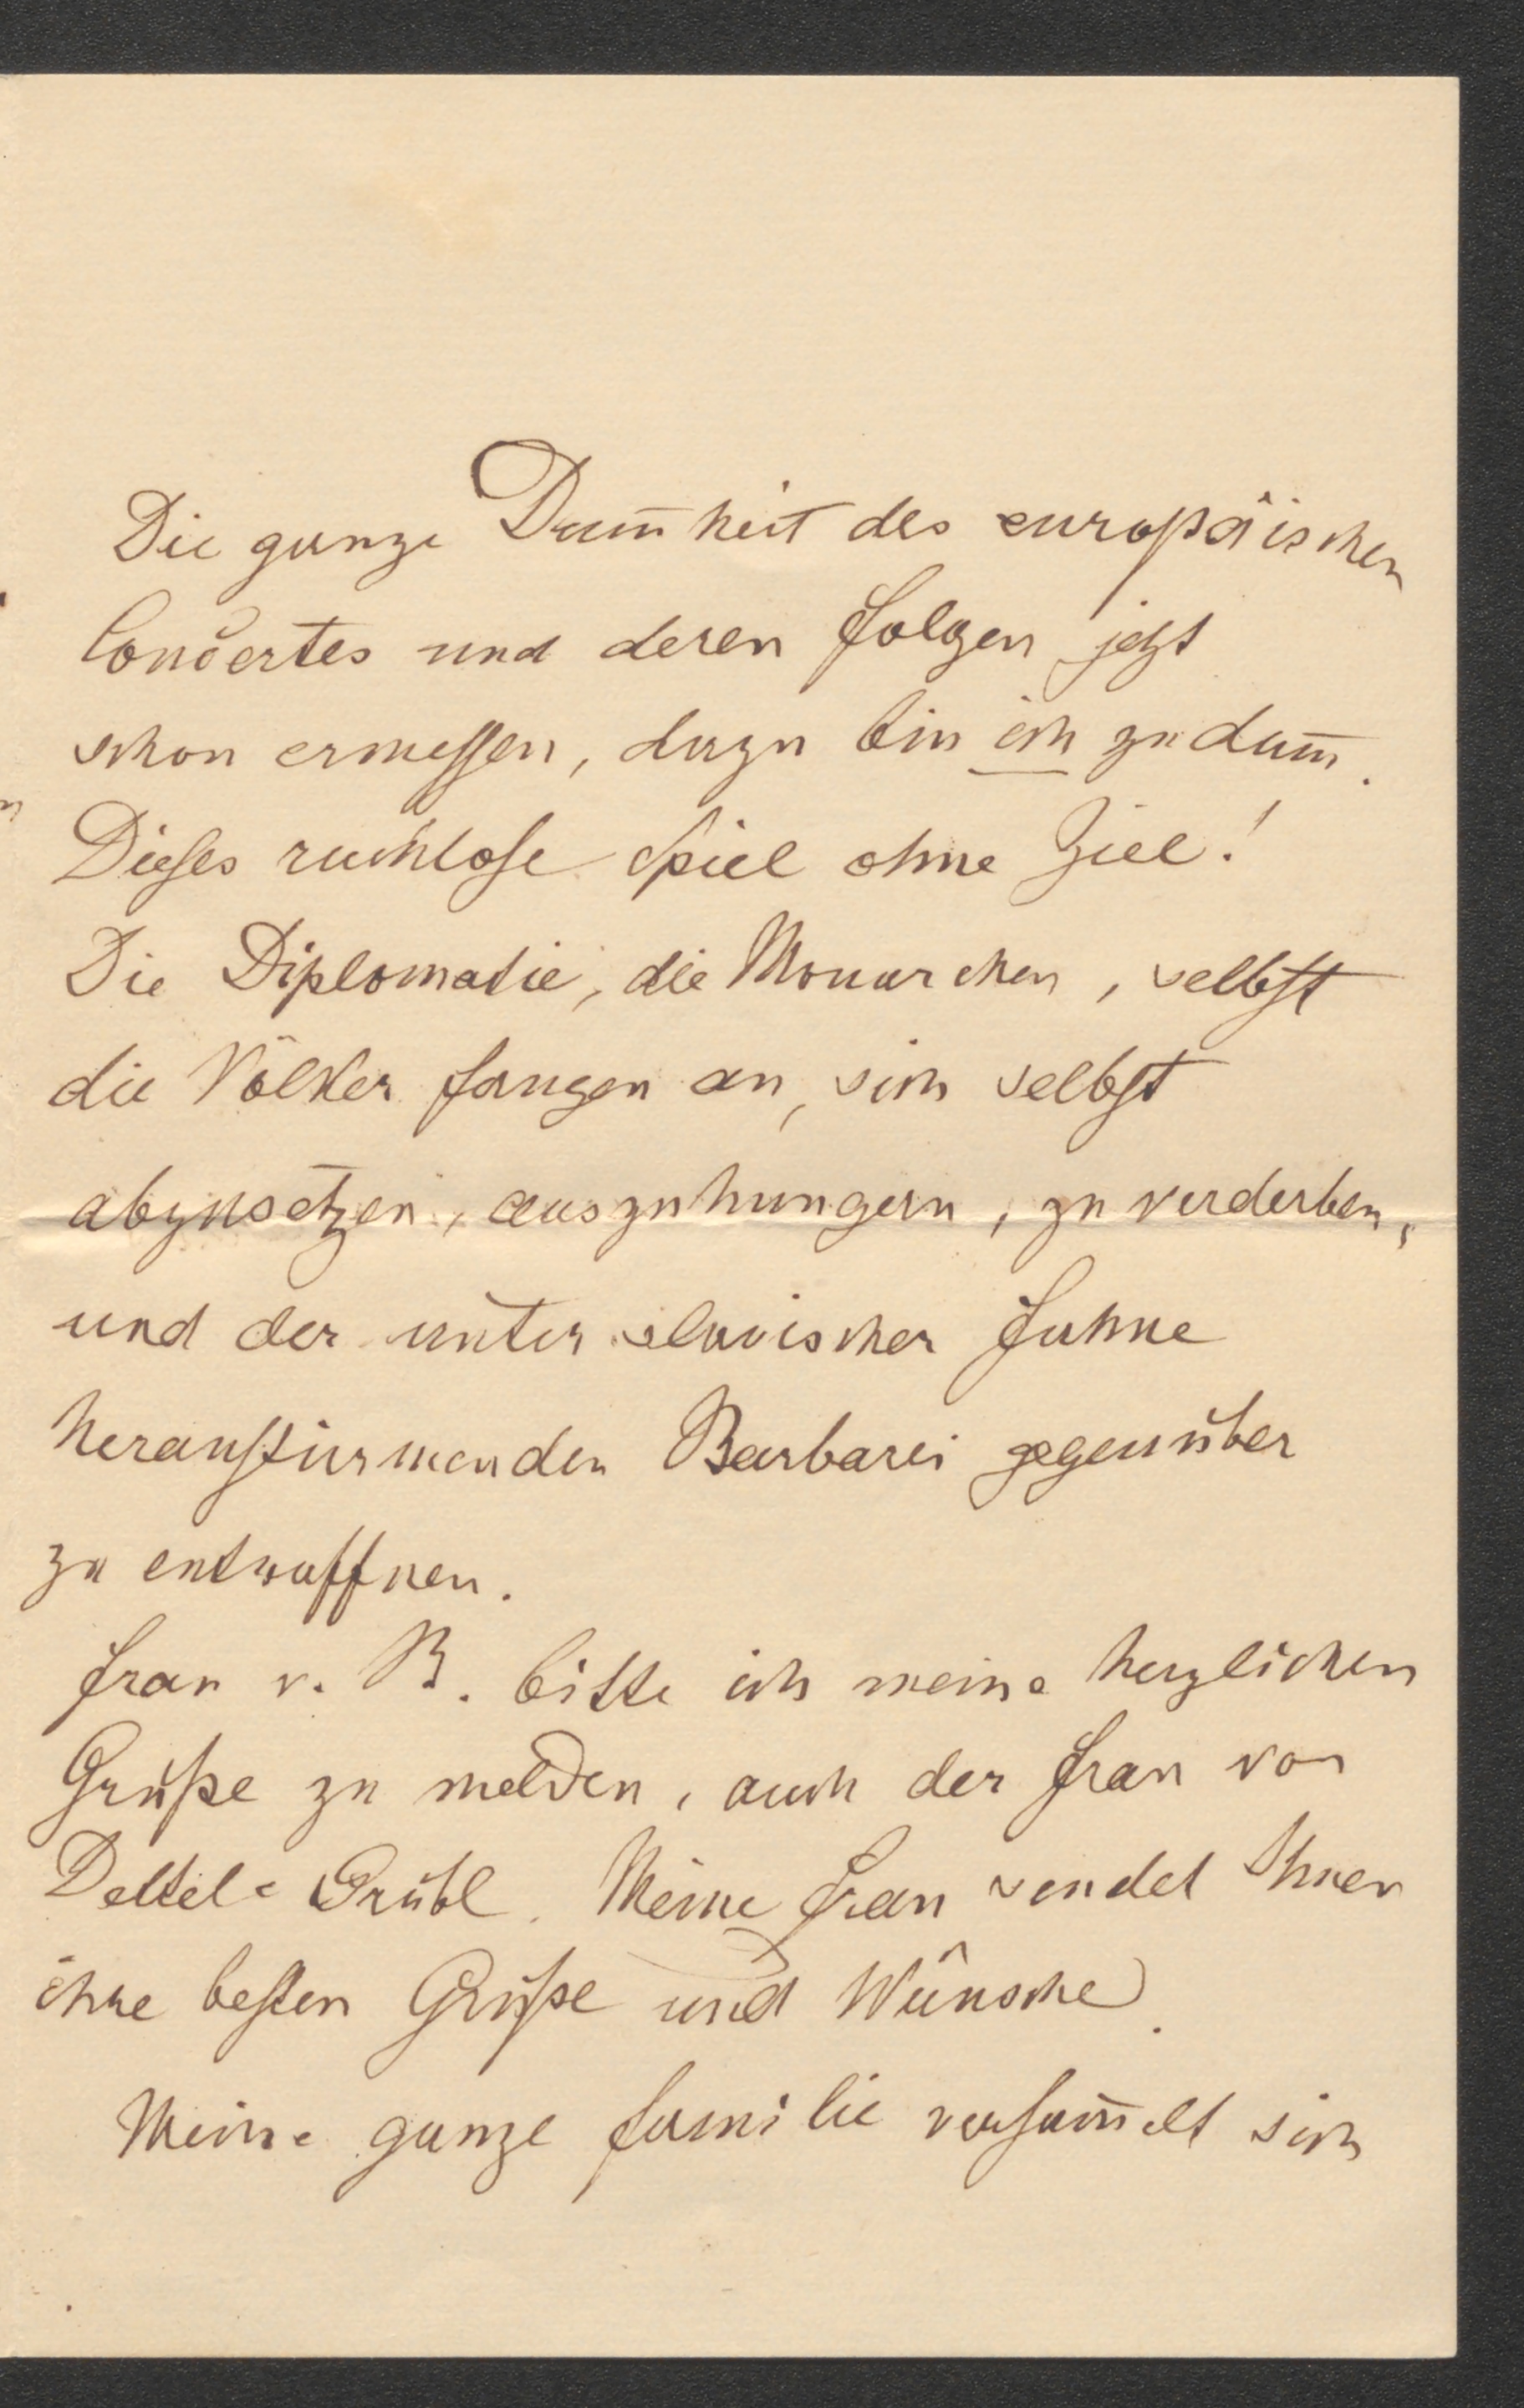 Die ganze Dum̅heit des europäischen
Concertes und deren Folgen jetzt
schon ermessen, dazu bin ich zu dum̅.
Dieses ruchlose Spiel ohne Ziel!
Die Diplomatie, die Monarchen, selbst
die Völker fangen an, sich selbst
abzusetzen, auszuhungern, zu verderben,
und der unter slavischer Fahne
heranstürmenden Barbarei gegenüber
zu entwaffnen.
Frau v. B. bitte ich meine herzlichen
Grüße zu melden, auch der Frau von
Grübl. Meine Frau sendet Ihnen
ihre besten Grüße und Wünsche.
Meine ganze Familie versam̅elt sich